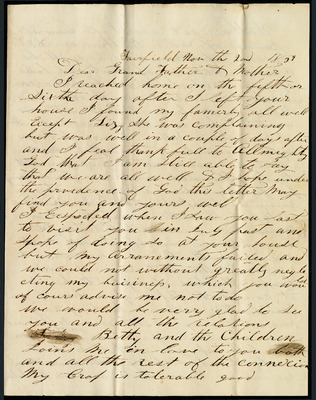 Fairfield Nov the 2nd 18
Dear Grand Father & Mother
I reached home on the fifth or
Sixth day after I left your
house I found my famerly all well
Except she was complaining
but was well in a couple of days after
and I feal thankfull to Allmighty
God that I am still able to Say
that we are all well & I hope under
the providence of God this letter May
find you and yours well
I Exspected when I Saw you last
to visit you in July past and
Spoke of doing so at your house
but my arranements failed and
we could not without greatly negle
cting my buisiness, which you would
of cours advise me not to do
we would be very glad to see
you and all the relation
Betty and the Children
Joins me in love to you both
and all the rest of the connexion
My Crop is tolerable good